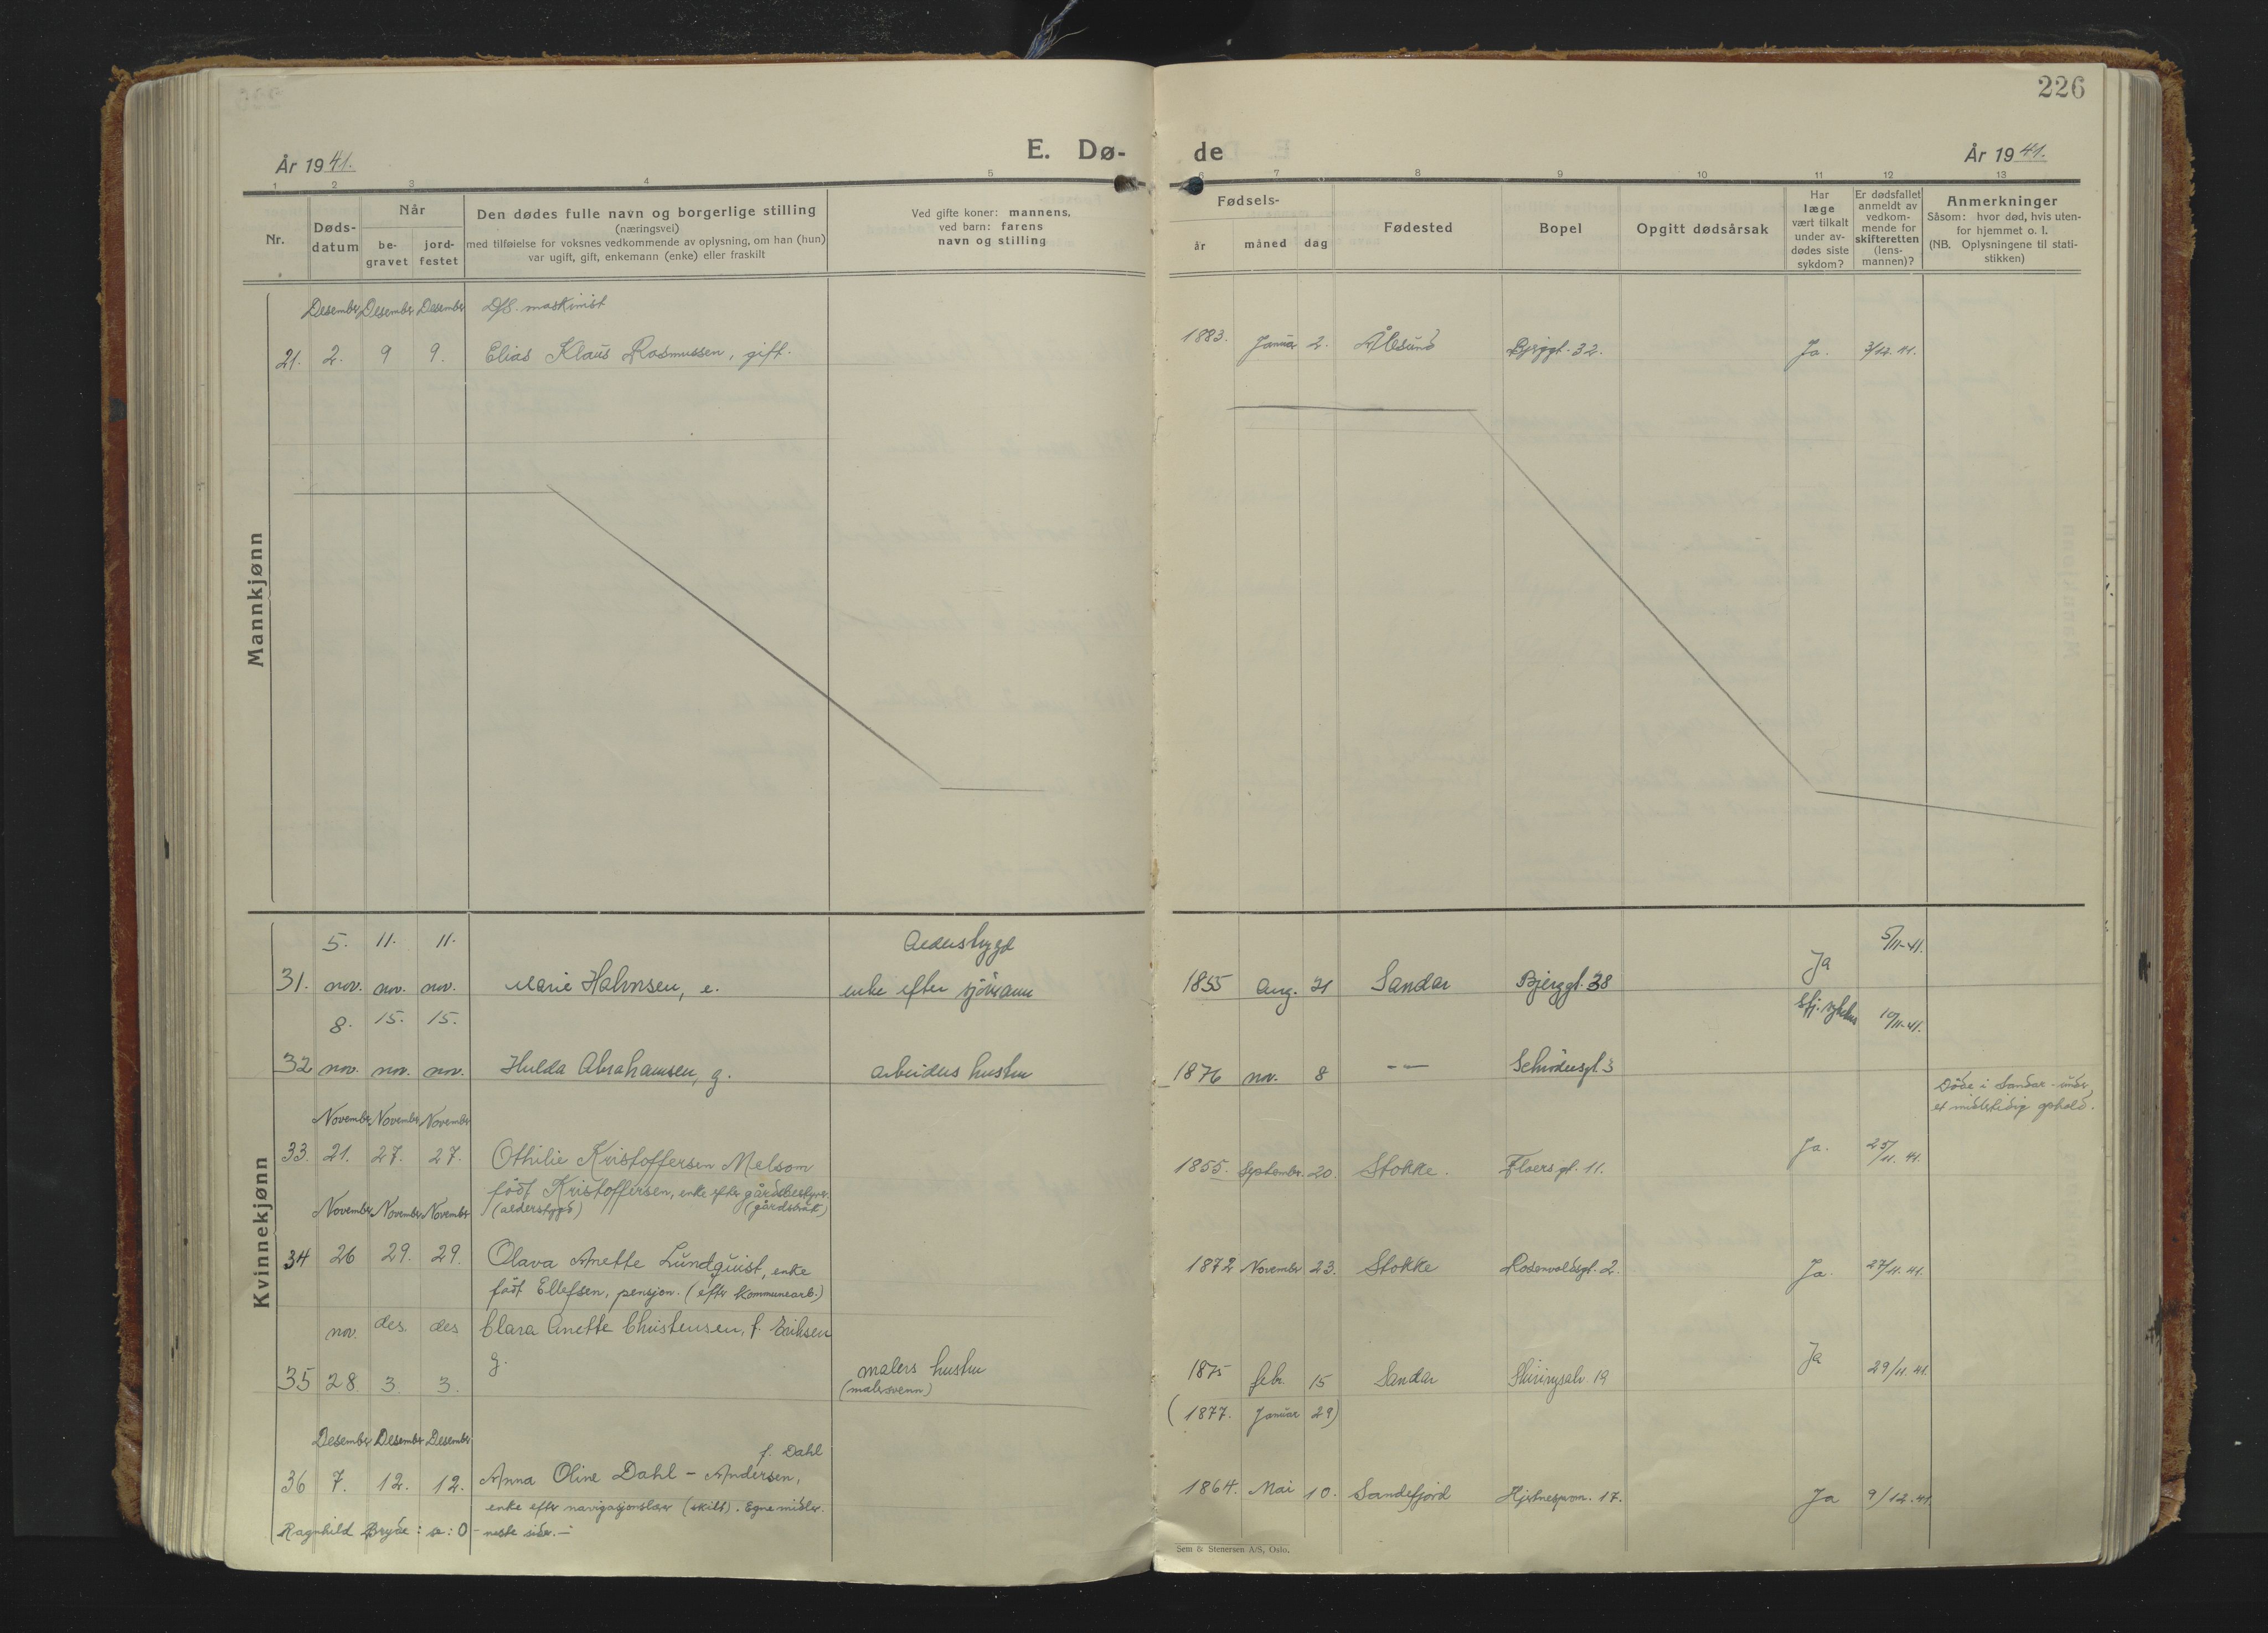 226
År 1941.
E. Dø-
de
År 1941.
1 2 3 4 5 6 7 8 9 10 11 12 13
Nr.
Døds-
datum
Når
be-
gravet
jord-
festet
Den dødes fulle navn og borgerlige stilling
(næringsvei)
med tilføielse for voksnes vedkommende av oplysning, om han (hun)
var ugift, gift, enkemann (enke) eller fraskilt
Ved gifte koner: mannens,
ved barn: farens
navn og stilling
Fødsels-
år måned dag
Fødested
Bopel
Opgitt dødsårsak
Har
læge
vært tilkalt
under av-
dødes siste
sykdom?
Er dødsfallet
anmeldt av
vedkom-
mende for
skifteretten
(lens-
mannen)?
Anmerkninger
Såsom: hvor død, hvis uten-
for hjemmet o. l.
(NB. Oplysningene til stati-
stikken)
Mannkjønn
Desember Desember Desember D/S. maskinist
21. 2. 9 9. Elias Klaus Rasmussen, gift. 1883. Januar 2. Ålesund Bjerggt. 32. Ja. 3/12.41.
Kvinnekjønn
5. 11. 11. Alderstygd 5/11-41.
31. nov. nov. nov. Marie Halvorsen, e. enke efter sjömann 1855 Aug. 31 Sandar Bjerggt. 38 Ja
8. 15. 15. Sfj. sykehus 10/11-41.
32 nov. nov. nov. Hulda Abrahamsen, g. arbeiders hustru 1876 nov. 8 -- Schrödersgt. 3
Döde i Sandar - under
et midlertidig ophold.
November November November
33. 21. 27. 27. Othilie Kristoffersen Melsom 1855. September 20. Stokke. Floers gt. 11. Ja. 25/11.41.
födt Kristoffersen, enke efter gårdbestyrer.
(alderstygd) (gårdsbruk)
November November November
34 26 29. 29. Olava Anette Lundquist, enke 1872 November 23. Stokke Rosenvoldsgt. 2. Ja. 27/11.41.
födt Ellefsen, pensjon. (efter kommunearb.)
nov. des. des Clara Anette Christensen, f. Eriksen
g.
35 28. 3. 3. malers hustru 1875 febr. 15 Sandar Skiringsalv. 19 Ja 29/11.41.
(malersvenn)
(1877. Januar 29)
Desember Desember Desember f. Dahl
36 7. 12. 12. Anna Oline Dahl - Andersen, 1864. Mai 10. Sandefjord Hjertnespron. 17. Ja 9/12.41.
enke efter navigasjonslærer (skilt). Egne midler.
Ragnhild Bryde: se: O - neste side. -
Sem & Stenersen A/S, Oslo.